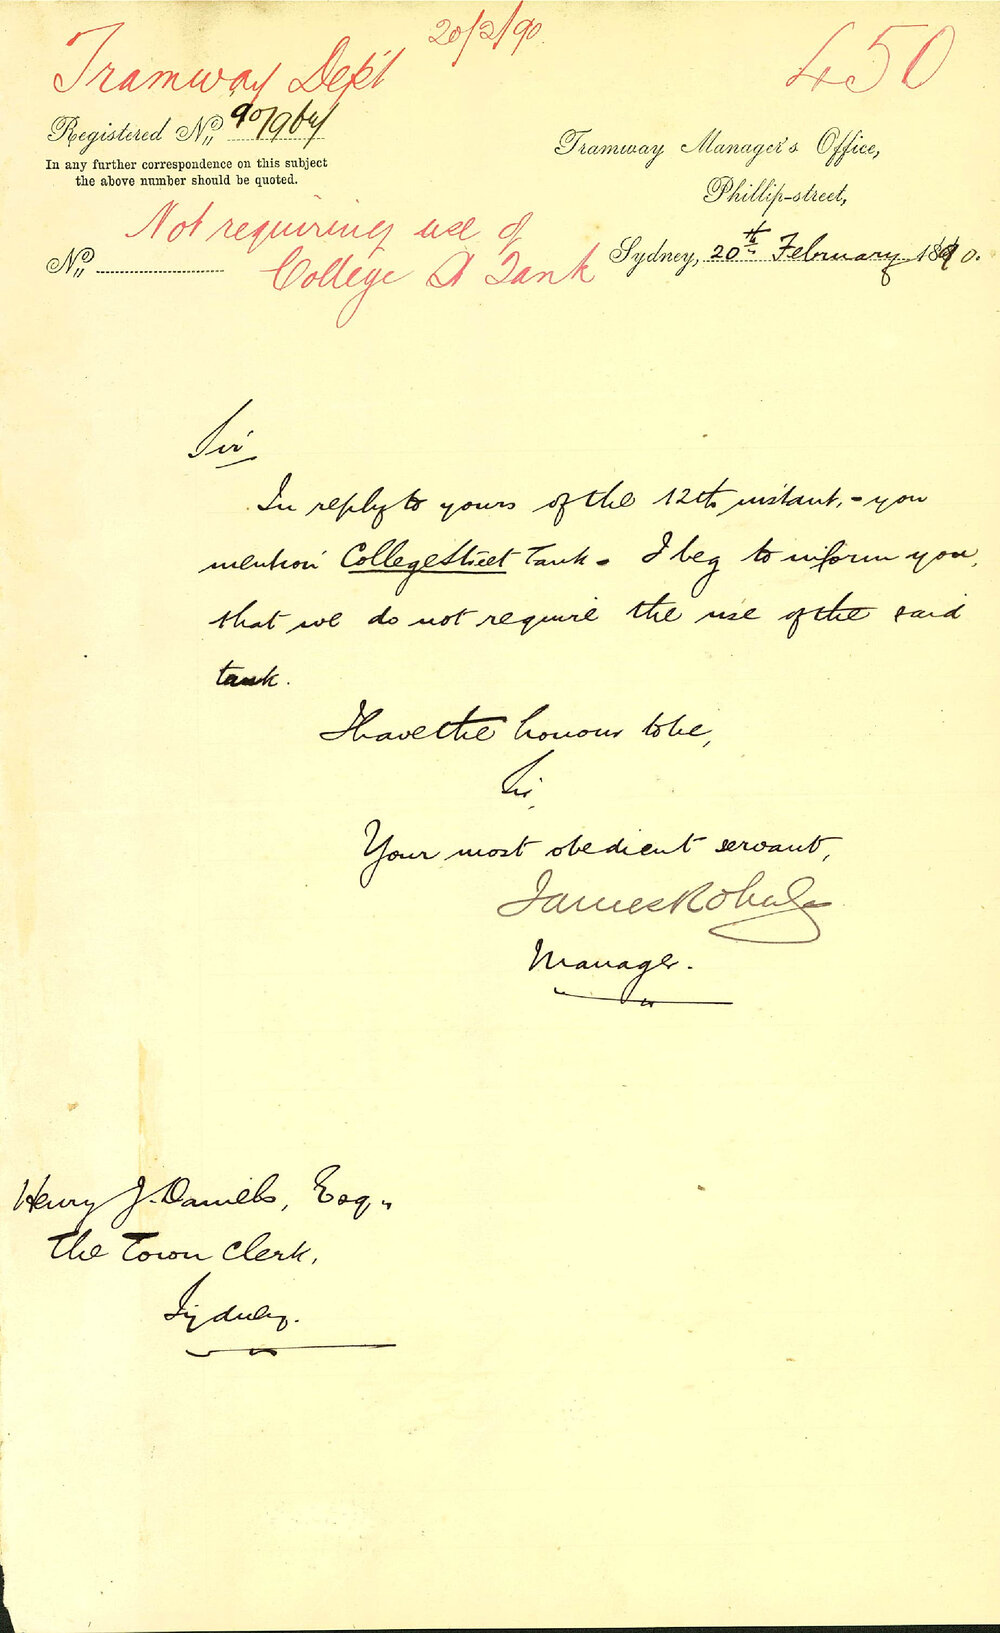 20/2/90
Tramway Dept
450
Registered No. 90/964
In any further correspondence on this subject
the above number should be quoted.
Tramway Manager's Office,
Phillip-street,
Not requiring use of
College St Tank
No.
Sydney, 20th February 1890.
Sir
In reply to yours of the 12th instant, - you
mention College Street Tank - I beg to inform you,
that we do not require the use of the said
tank.
I have the honour to be,
Sir,
Your most obedient servant,
James Roberts
Manager.
Henry J. Daniels, Esq.,
The Town Clerk,
Sydney.